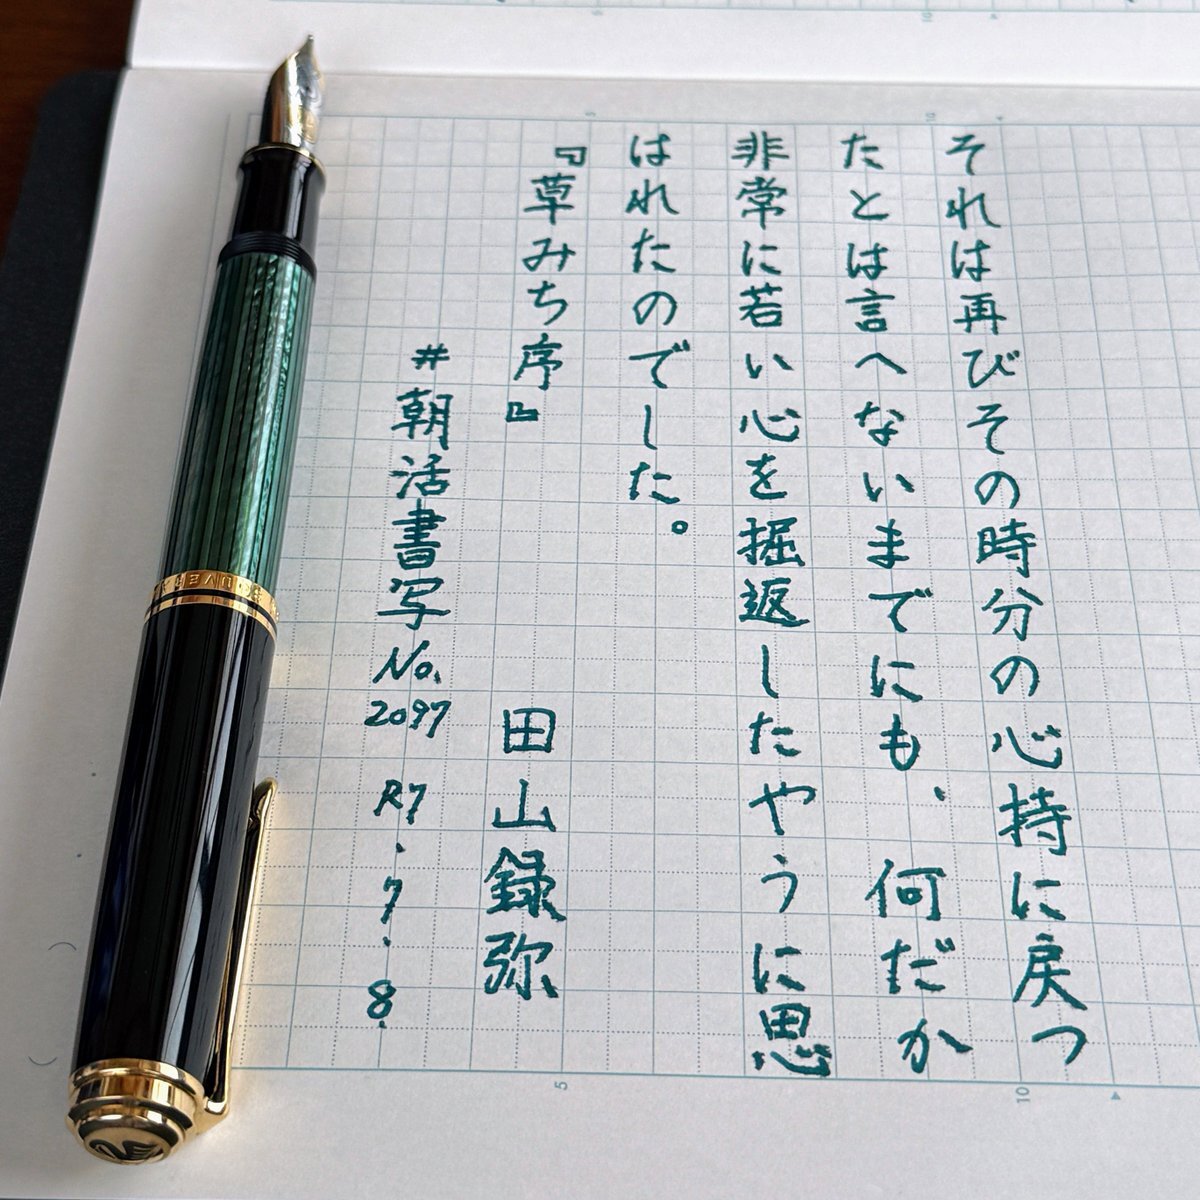 それは再びその時分の心持に戻つ
たとは言へないまでにも、何だか
非常に若い心を掘返したやうに思
はれたのでした。
『草みち序』
田山録弥
#朝活書写No.2097 R7.7.8.
5
10